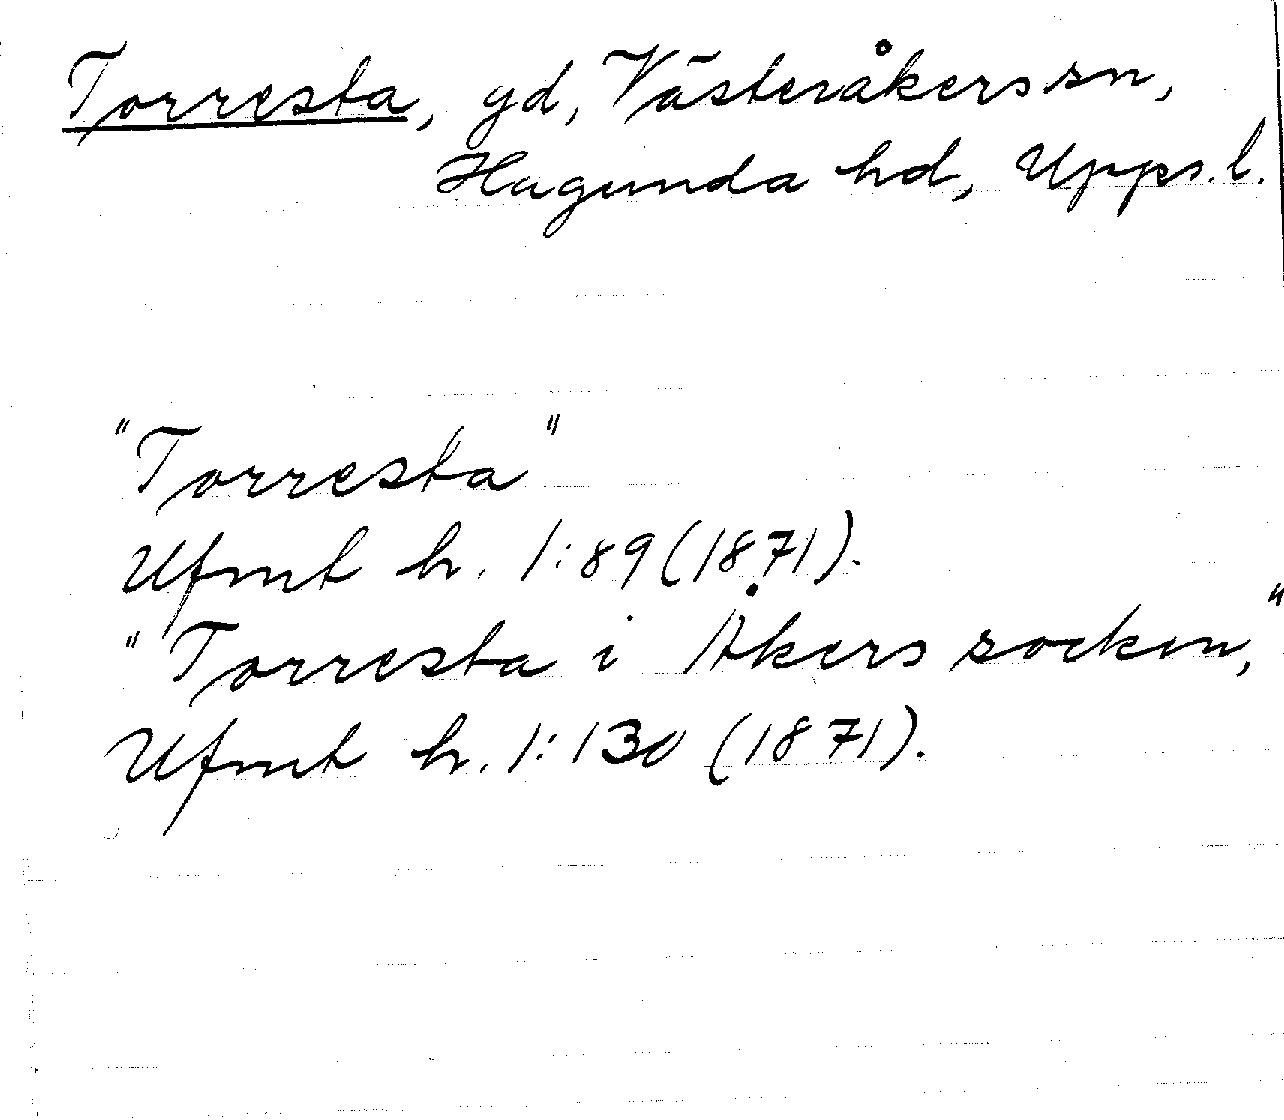 Torresta, gd, Västeråkers sn,
Hagunda hd, Upps. l.
"Torresta"
Ufmt h. 1:89 (1871).
"Torresta i Åkers socken,"
Ufmt h. 1:130 (1871).